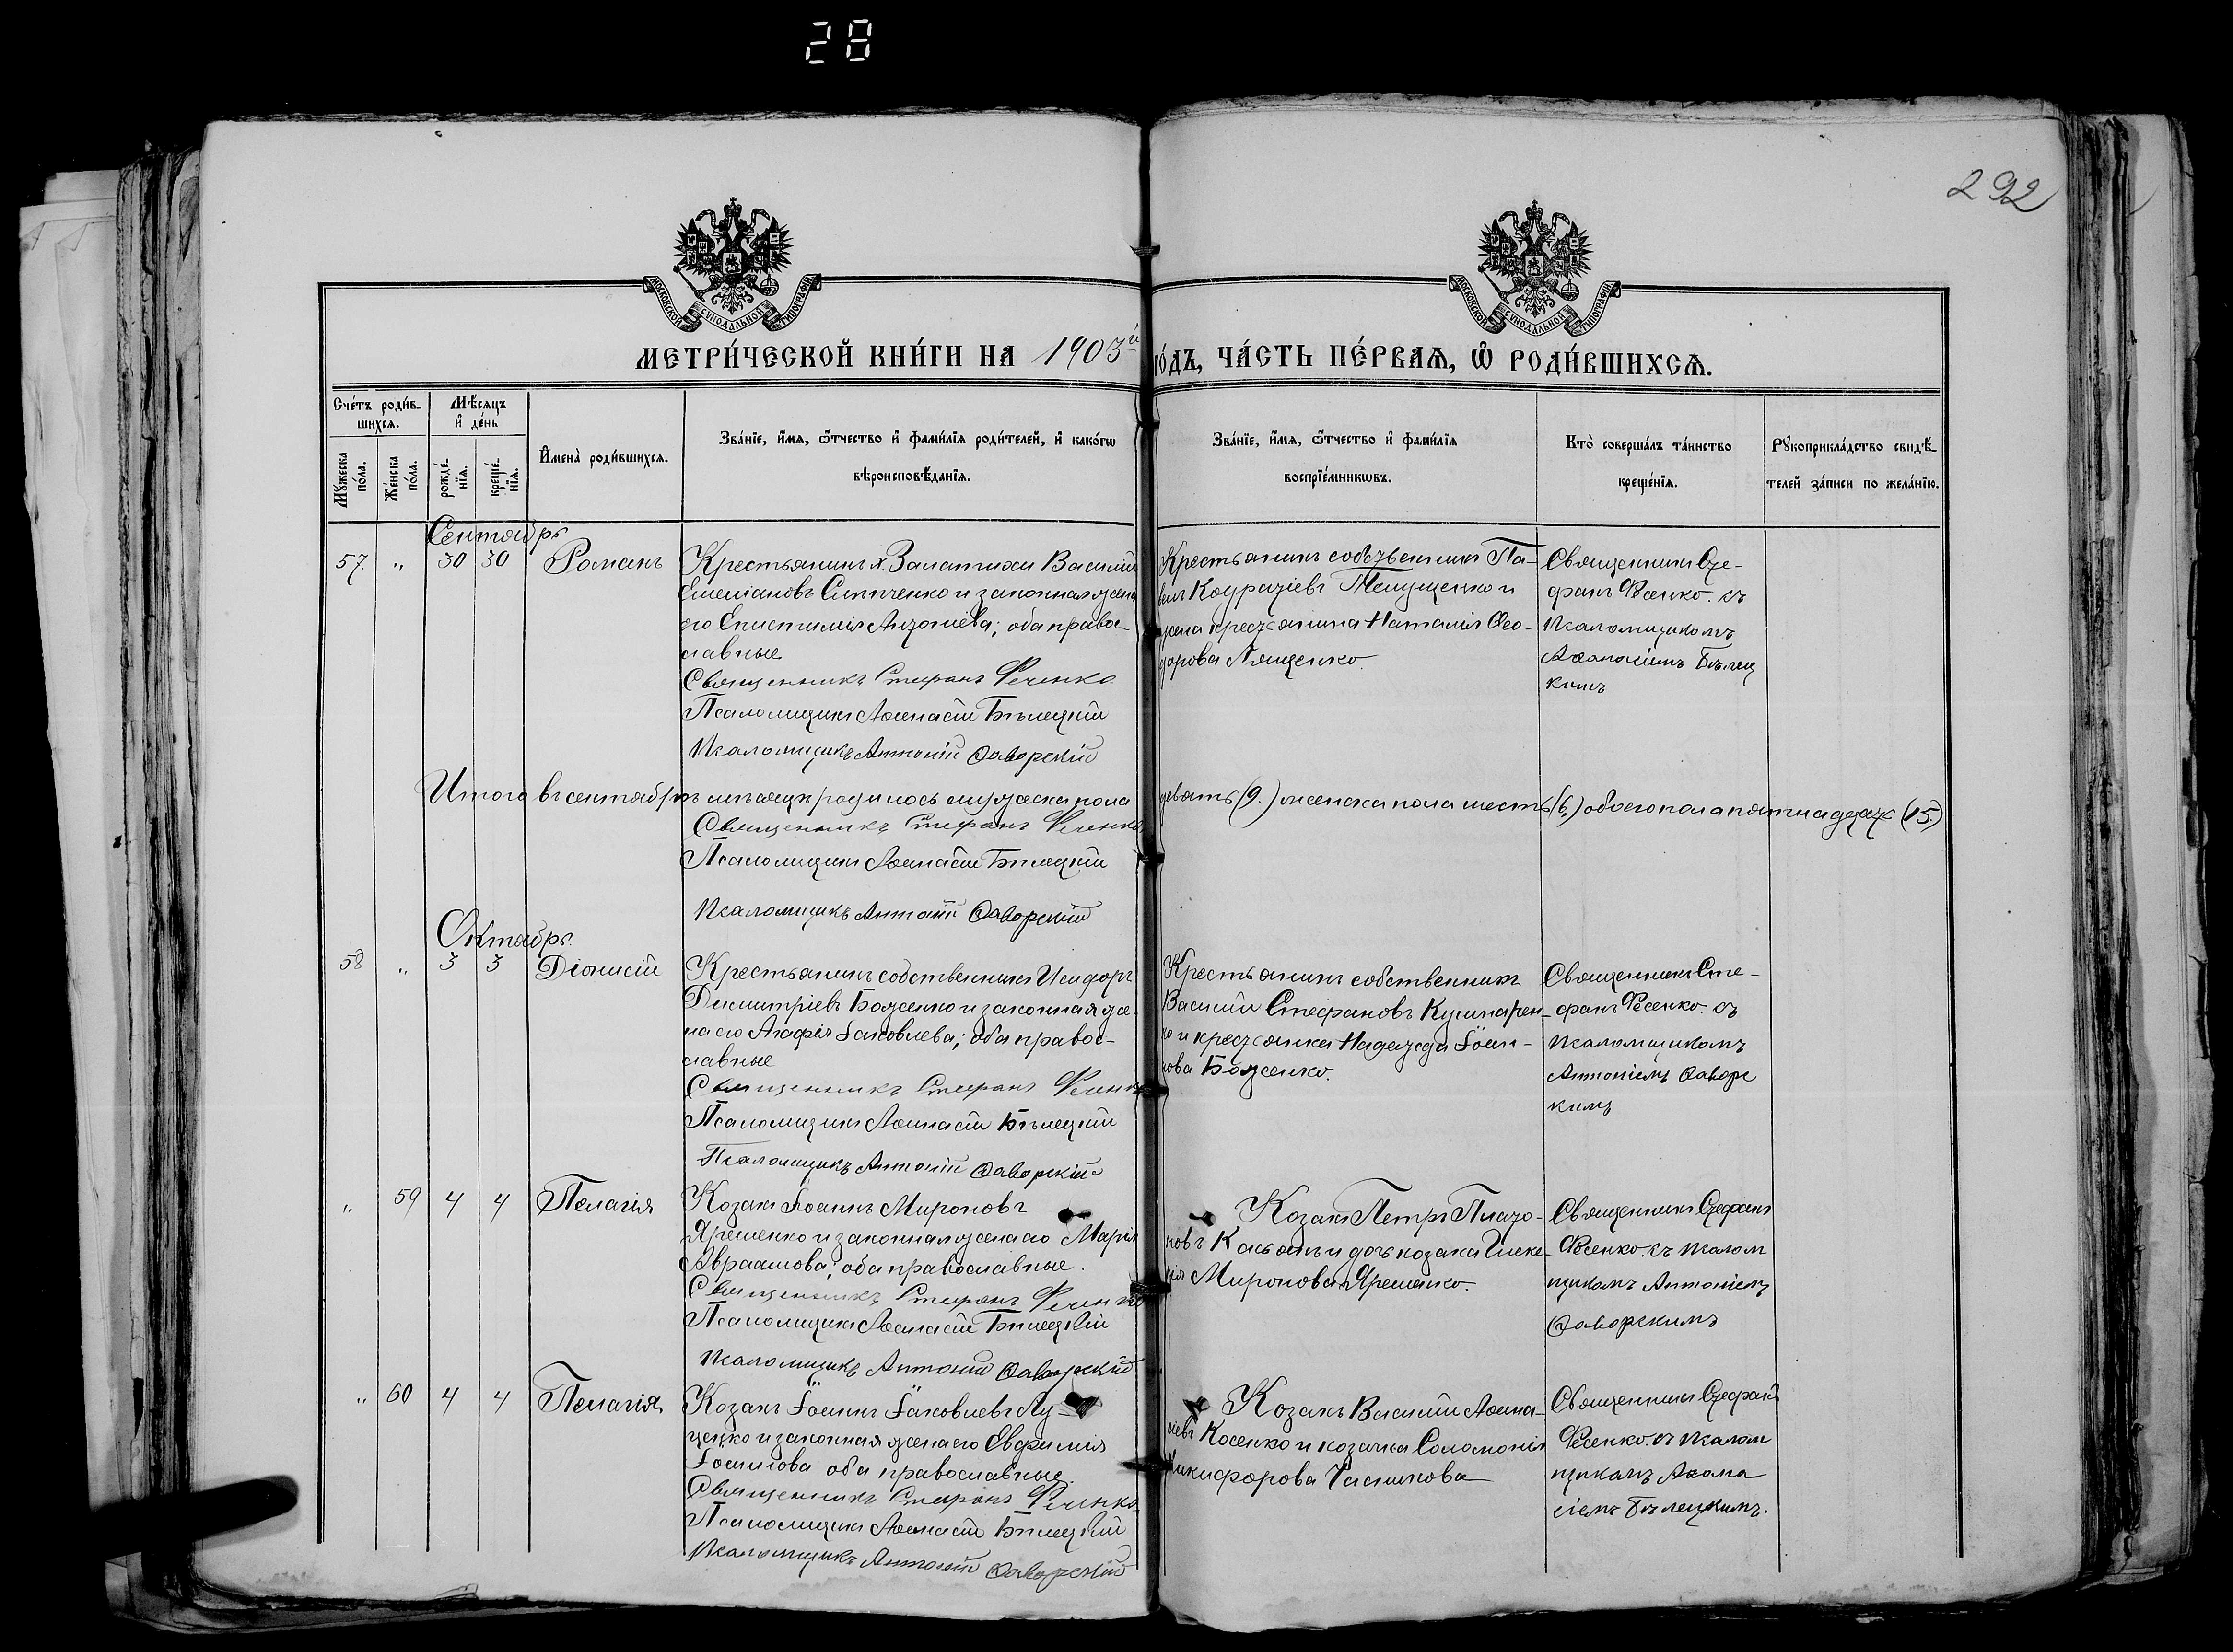 28
292
МОСКОВСКОЙ СѴНОДАЛЬНОЙ ТИПОГРАФІИ
МОСКОВСКОЙ СѴНОДАЛЬНОЙ ТИПОГРАФІИ
МЕТРИ́ЧЕСКОЙ КНИ́ГИ НА 1903й го́дъ, ЧА́СТЬ ПЕ́РВАѦ, Ѡ҆ РОДИ́ВШИХСѦ.
Сче́тъ роди́в-
шихсѧ.
Мꙋжеска по́ла.
Же́нска по́ла.
Мѣ́сѧцъ
и҆ де́нь
рожде́-
нїѧ.
креще́-
нїѧ.
И҆мена̀ роди́вшихсѧ.
Зва́нїе, и҆́мѧ, ѻ҆́тчество и҆ фами́лїѧ роди́телей, и҆ како́гѡ
вѣроисповѣ́данїѧ.
Зва́нїе, и҆́мѧ, ѻ҆́тчество и҆ фами́лїѧ
воспрїе́мникѡвъ.
Кто̀ соверша́лъ та́инство
креще́нїѧ.
Рꙋкоприкла́дство свидѣ́-
телей за́писи по жела́нїю.
Сентябрь
57. " 30 30 Романъ
Крестьянинъ Василій
Емеліановъ и законная жена
его Епистимія Антоніева; оба правос-
лавные
Священникъ Стефанъ Фесенко
Псаломщикъ Аѳанасій Бѣлецкій
Псаломщикъ Антоній Ѳаворскій
Крестьянинъ собственникъ Па-
велъ и
жена крестьянина Наталія Ѳео-
дорова Лященко.
Священникъ Сте-
фанъ Фесенко. съ
псаломщикомъ
Аѳанасіемъ Бѣлец
кимъ
Итого въ сентябрѣ мѣсяцѣ родилось мужеска пола девять (9.) женска пола шесть (6.) обоего пола пятнадцать (15.)
Священникъ Стефанъ Фесенко
Псаломщикъ Аѳанасій Бѣлецкій
Псаломщикъ Антоній Ѳаворскій
Октябрь.
58 " 3 3 Діонисій
Крестьянинъ собственникъ Исидоръ
Димитріевъ Боженко и законная же-
на его Агафія Іаковлева; оба правос-
лавные
Священникъ Стефанъ Фесенко
Псаломщикъ Аѳанасій Бѣлецкій
Псаломщикъ Антоній Ѳаворскій
Крестьянинъ собственникъ
Василій Стефановъ Кушнарен-
ко и крестьянка Надежда Іоан-
нова Боженко.
Священникъ Сте-
фанъ Фесенко. съ
псаломщикомъ
Антоніемъ Ѳаворс
кимъ
" 59 4 4 Пелагія
Козакъ Іоаннъ Мироновъ
Яременко и законная жена его Марія
Авраамова; оба православные.
Священникъ Стефанъ Фесенко
Псаломщикъ Аѳанасій Бѣлецкій
Псаломщикъ Антоній Ѳаворскій
Козакъ Петръ Плато-
новъ Касьянъ и дочь козака
Миронова Яременко.
Священникъ Стефанъ
Фесенко. съ псалом
щикомъ Антоніемъ
Ѳаворскимъ
" 60 4 4 Пелагія
Козакъ Іоаннъ Іаковлевъ Лу-
ценко и законная жена его Евфимія
Іоаннова оба православные.
Священникъ Стефанъ Фесенко
Псаломщикъ Аѳанасій Бѣлецкій
Псаломщикъ Антоній Ѳаворскій
Козакъ Василій Аѳана-
сіевъ Косенко и козачка Соломонія
Никифорова
Священникъ Стефанъ
Фесенко. съ псалом
щикомъ Аѳана
сіемъ Бѣлецкимъ.